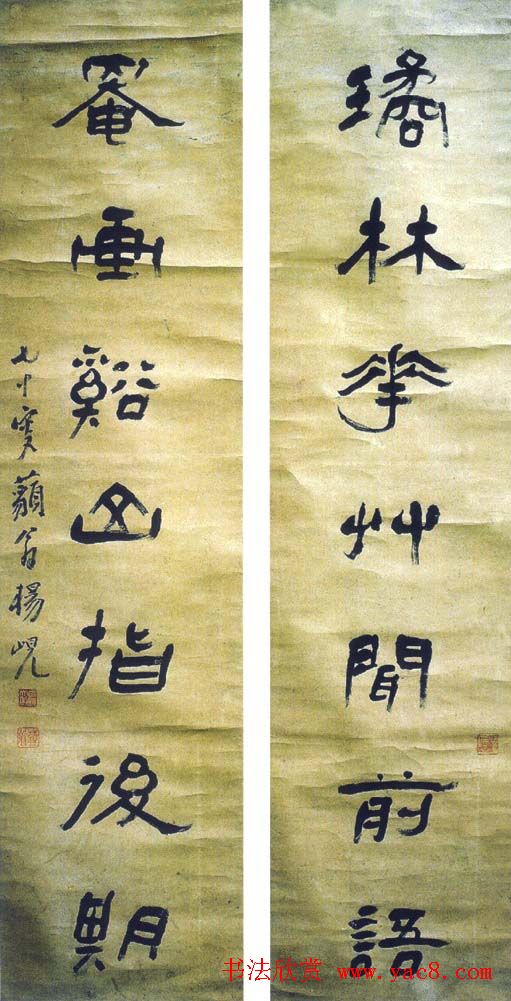 璚林華艸聞前語
罨画谿山指後期
七十叟藐翁楊峴
书法欣赏 www.yac8.com